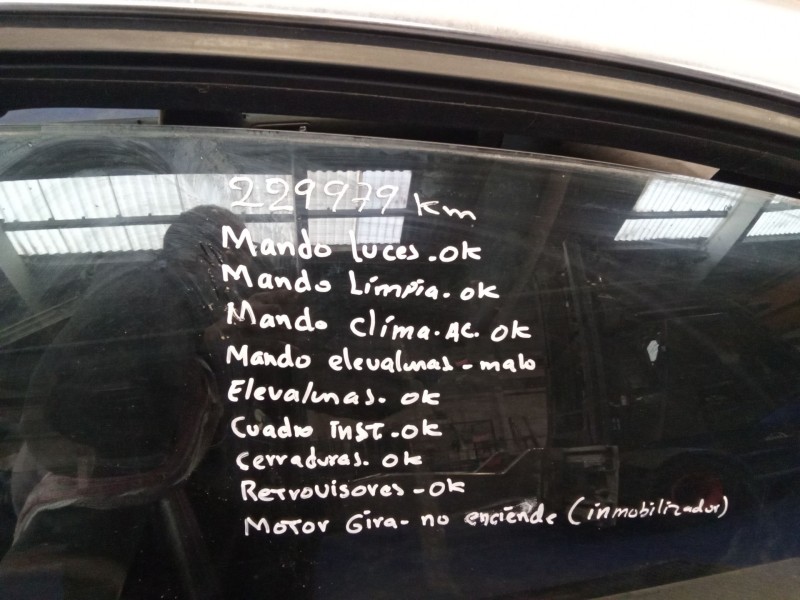 229979 km
Mando luces.ok
Mando Limpia.ok
Mando clima.AC. ok
Mando elevalunas - malo
Elevalunas. ok
Cuadro INST.ok
Cerraduras. ok
Retrovisores - ok
Motor Gira - no enciende (inmobilizador)